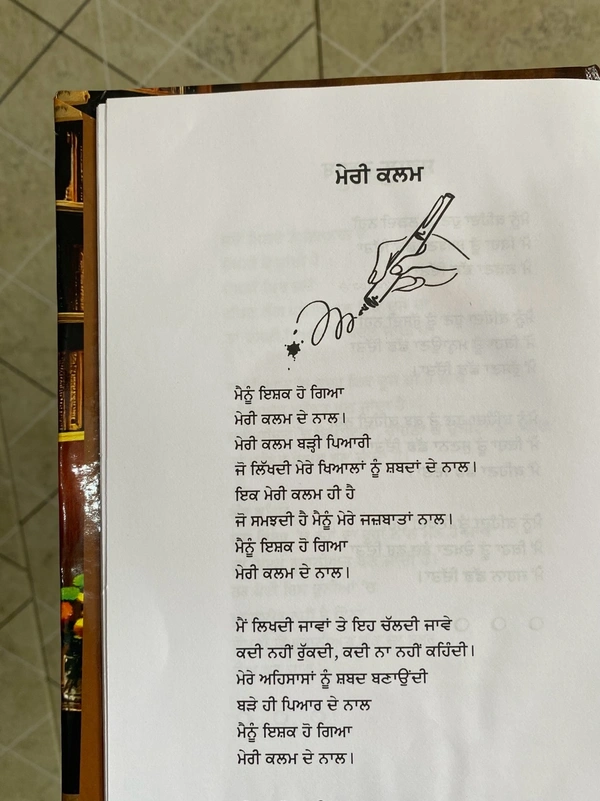 ਮੇਰੀ ਕਲਮ
ਮੈਨੂੰ ਇਸ਼ਕ ਹੋ ਗਿਆ
ਮੇਰੀ ਕਲਮ ਦੇ ਨਾਲ।
ਮੇਰੀ ਕਲਮ ਬੜ੍ਹੀ ਪਿਆਰੀ
ਜੋ ਲਿੱਖਦੀ ਮੇਰੇ ਖਿਆਲਾਂ ਨੂੰ ਸ਼ਬਦਾਂ ਦੇ ਨਾਲ।
ਇਕ ਮੇਰੀ ਕਲਮ ਹੀ ਹੈ
ਜੋ ਸਮਝਦੀ ਹੈ ਮੈਨੂੰ ਮੇਰੇ ਜਜ਼ਬਾਤਾਂ ਨਾਲ।
ਮੈਨੂੰ ਇਸ਼ਕ ਹੋ ਗਿਆ
ਮੇਰੀ ਕਲਮ ਦੇ ਨਾਲ।
ਮੈਂ ਲਿਖਦੀ ਜਾਵਾਂ ਤੇ ਇਹ ਚੱਲਦੀ ਜਾਵੇ
ਕਦੀ ਨਹੀਂ ਰੁੱਕਦੀ, ਕਦੀ ਨਾ ਨਹੀਂ ਕਹਿੰਦੀ।
ਮੇਰੇ ਅਹਿਸਾਸਾਂ ਨੂੰ ਸ਼ਬਦ ਬਣਾਉਂਦੀ
ਬੜੇ ਹੀ ਪਿਆਰ ਦੇ ਨਾਲ
ਮੈਨੂੰ ਇਸ਼ਕ ਹੋ ਗਿਆ
ਮੇਰੀ ਕਲਮ ਦੇ ਨਾਲ।